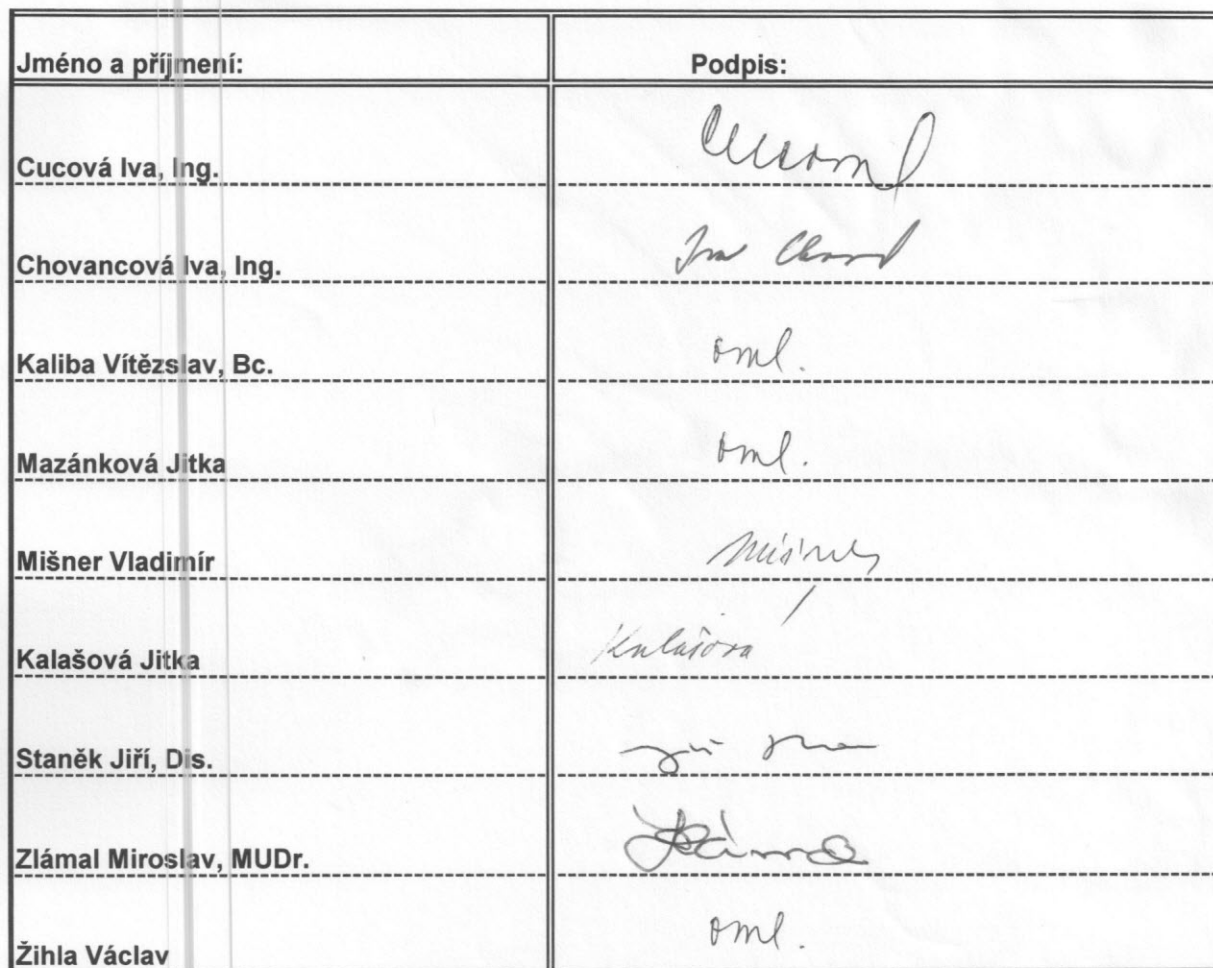 Jméno a příjmení: Podpis:
Cucová Iva, Ing.
Chovancová Iva, Ing.
Kaliba Vítězslav, Bc. oml.
Mazánková Jitka oml.
Mišner Vladimír Mišner
Kalašová Jitka Kalašová
Staněk Jiří, Dis.
Zlámal Miroslav, MUDr.
Žihla Václav oml.